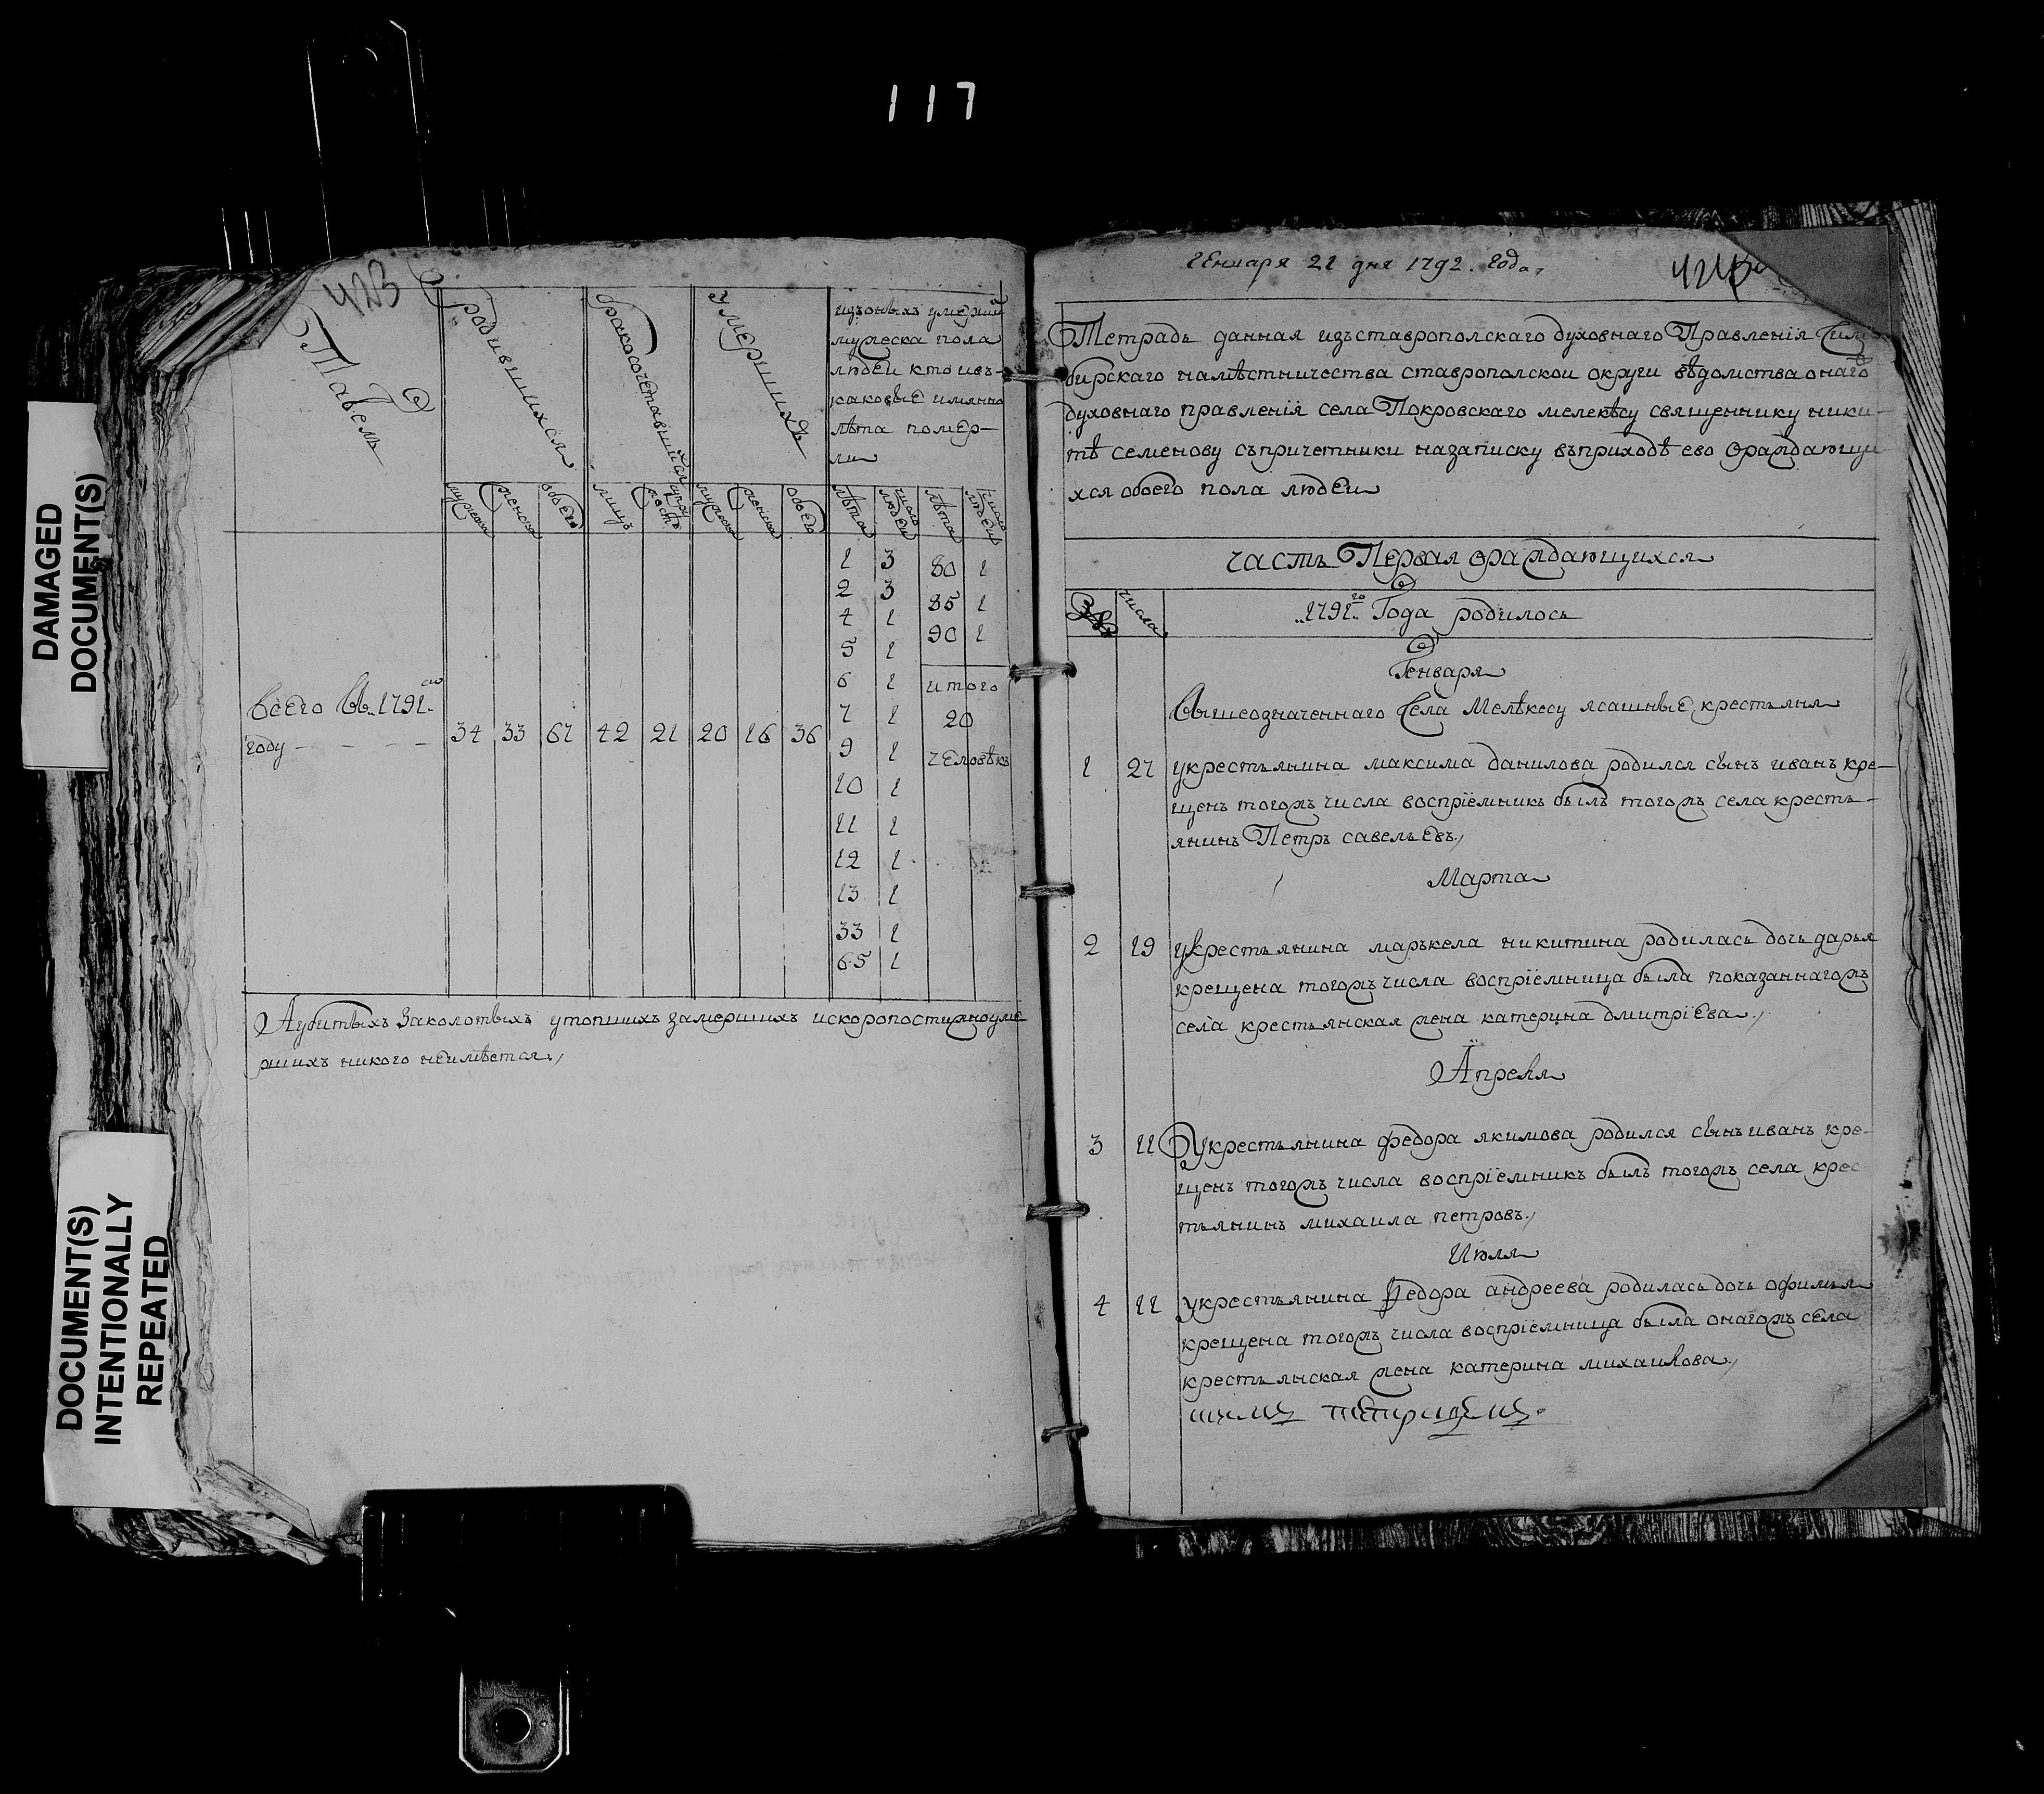 117
DAMAGED
DOCUMENT(S)
DOCUMENT(S)
INTENTIONALLY
REPEATED
423
Табель
родившихся
бракосочетавшихся
умершихъ
изъоныхъ умерши
мужеска пола
людеи кто ивъ-
каковые имянно
лѣта помер-
ли
мужеска
женска
обоего
лицъ
мужеска
женска
обоего
лѣта
число людеи
лѣта
число людеи
1 3 80 1
2 3 85 1
4 1 90 1
5 1
6 1 итого
7 1 20
9 1 человѣкъ
10 1
11 1
12 1
13 1
33 1
65 1
Всего Въ 1791м
году - - - - 34 33 67 42 21 20 16 36
Аубитыхъ Заколотыхъ утопшихъ замершихъ искоропостижноуме
ршихъ никого неимѣется
Генваря 21 дня 1792. года
424
Тетрадь данная изъставрополскаго духовнаго Правленія Сим
бирскаго намѣстничества ставрополскои округи вѣдомства онаго
духовнаго правленія села Покровскаго мелекѣсу священнику ники-
тѣ семенову съпричетники назаписку въприходѣ ево ораждающи
хся обоего пола людеи
часть Первая ораждающихся
числа
1791го Года родилось
Генваря
Вышеозначеннаго Села Мелѣкесу ясашные крестьяня
1 27 укрестьянина максима данилова родился сынъ иванъ кре-
щенъ тогожъ числа воспріемникъ былъ тогожъ села кресть-
янинъ Петръ савельевъ
Марта
2 19 укрестьянина маръкела никитина родилась дочь дарья
крещена тогожъ числа воспріемница была показаннагожъ
села крестьянская жена катерина дмитріева
Апреля
3 11 Укрестьянина федора якимова родился сынъ иванъ кре-
щенъ тогожъ числа воспріемникъ былъ тогожъ села крес
тьянинъ михаила петровъ
Июля
4 11 укрестьянина Федора андреева родилась дочь офимья
крещена тогожъ числа воспріемница была онагожъ села
крестьянская жена катерина михаилова